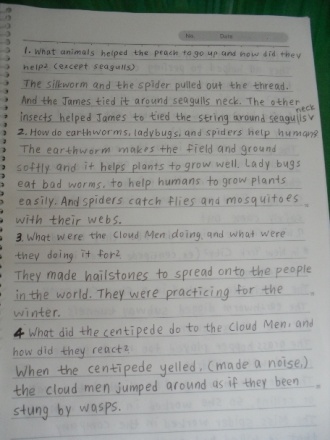 No. Date
1. What animals helped the peach to go up and how did they
help? (except seagulls)
The silkworm and the spider pulled out the thread.
And the James tied it around seagulls neck. The other
insects helped James to tied the string around seagulls neck
2. How do earthworms, ladybugs, and spiders help humans
The earthworm makes the field and ground
softly and it helps plants to grow well. Lady bugs
eat bad worms, to help humans to grow plants
easily. And spiders catch flies and mosquitoes
with their webs.
3. What were the Cloud Men doing and what were
they doing it for?
They made hailstones to spread onto the people
in the world. They were practicing for the
winter.
4 What did the centipede do to the Cloud Men, and
how did they react?
When the centipede yelled, (made a noise,)
the cloud men jumped around as if they been
stung by wasps.